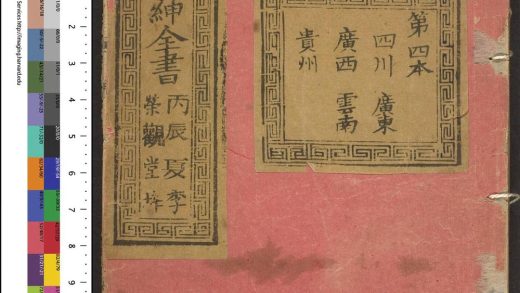 第四本
四川 廣東
廣西 雲南
貴州
紳全書
丙辰夏季
榮觀堂梓
Services http://imaging.harvard.edu
2
3
4
5
6
7
8
9